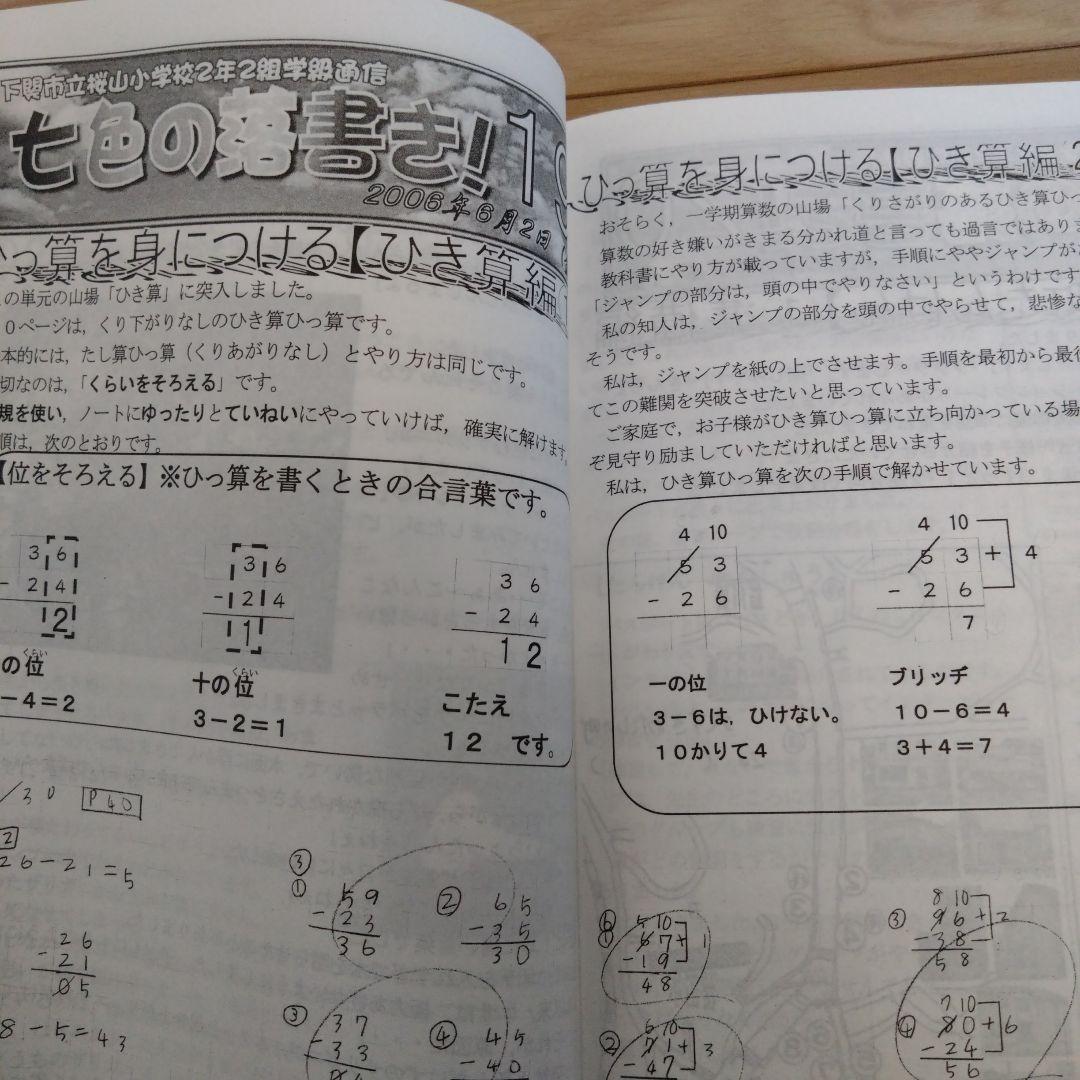 下関市立桜山小学校2年2組学級通信
七色の落書き! 19
2006年6月2日
っ算を身につける【ひき算編
の単元の山場「ひき算」に突入しました。
0ページは，くり下がりなしのひき算ひっ算です。
本的には，たし算ひっ算（くりあがりなし）とやり方は同じです。
切なのは，「くらいをそろえる」です。
規を使い，ノートにゆったりとていねいにやっていけば，確実に解けます。
順は，次のとおりです。
【位をそろえる】※ひっ算を書くときの合言葉です。
36
- 24
2
の位
くらい
- 4 = 2
36
- 24
1
十の位
くらい
3 - 2 = 1
36
- 24
12
こたえ
12 です。
/30 P40
2
26 - 21 = 5
26
- 21
05
8 - 5 = 43
③
① 59
- 23
36
② 65
- 35
30
③ 37
- 33
④ 45
- 40
ひっ算を身につける【ひき算編 2
おそらく，一学期算数の山場「くりさがりのあるひき算ひっ
算数の好き嫌いがきまる分かれ道と言っても過言ではありま
教科書にやり方が載っていますが，手順にややジャンプが
「ジャンプの部分は，頭の中でやりなさい」というわけです
私の知人は，ジャンプの部分を頭の中でやらせて，悲惨な
そうです。
私は，ジャンプを紙の上でさせます。手順を最初から最
てこの難関を突破させたいと思っています。
ご家庭で，お子様がひき算ひっ算に立ち向かっている場
ぞ見守り励ましていただければと思います。
私は，ひき算ひっ算を次の手順で解かせています。
4 10
53
- 26
一の位
3-6は，ひけない。
10かりて4
4 10
53 + 4
- 26
7
ブリッヂ
10-6=4
3+4=7
⑥
① 5 10
67 + 1
- 19
48
② 6 10
71 + 3
- 47
③ 8 10
96 + 2
- 38
58
④ 7 10
80 + 6
- 24
56